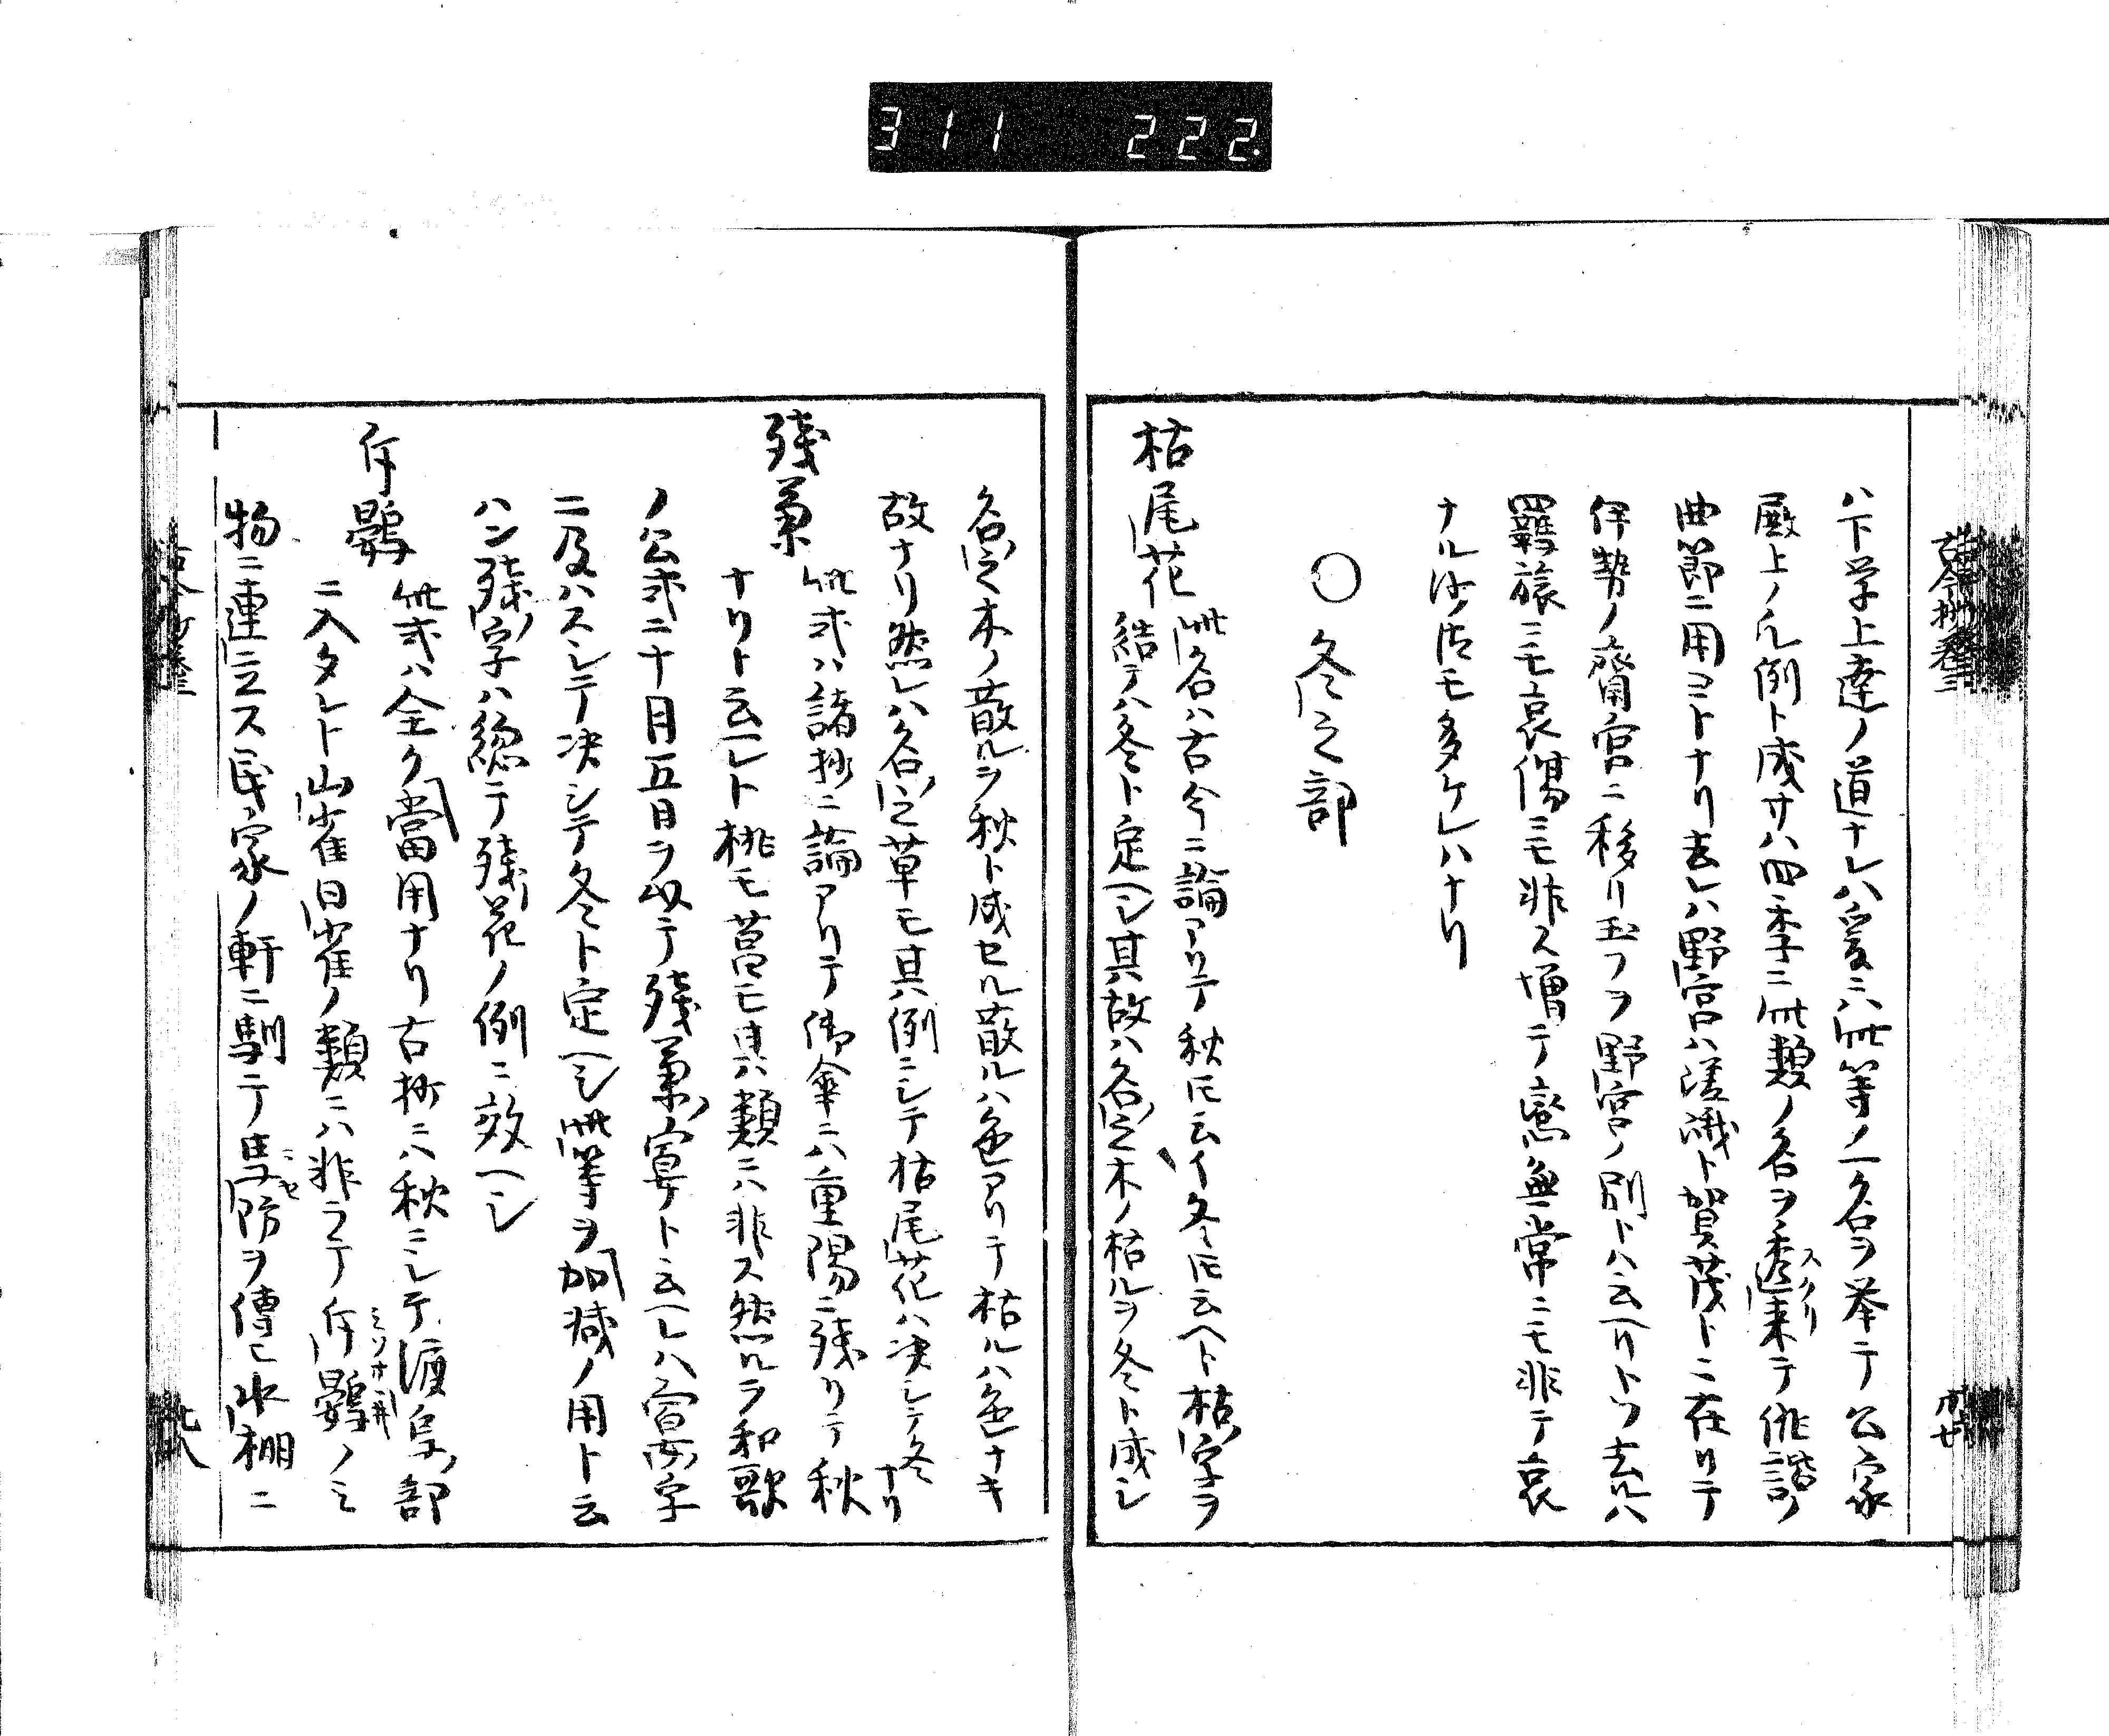 311 222.
ハ下学上達ノ道ナレハ爰ニハ此等ノ一名ヲ挙テ公家
殿上ノ凡例ト成サハ四季ニ此類ノ名ヲ透来テ俳諧ノ
スクリ
曲節ニ用コトナリ去レハ野宮ハ嵯峨ト賀茂トニ在リテ
伊勢ノ齋宮ニ移リ玉フヲ野宮ノ別トハ云ヘリトソ去レハ
羇旅ニモ哀傷ニモ非ス増テ戀無常ニモ非テ哀
ナル沙汰モ多ケレハナリ
○冬之部
枯尾花 此名ハ古今ニ論アリテ秋圧云イ冬圧云ヘト枯ノ字ヲ
結テハ冬ト定ヘシ其故ハ名ノ之木ノ枯ルヲ冬ト成シ
名ノ之木ノ散ルヲ秋ト成セル散ルハ色アリテ枯ルハ色ナキ
故ナリ然レハ名ノ之草モ其例ニシテ枯尾花ハ决シテ冬ナリ
殘菊 此式ハ諸抄ニ論アリテ御傘ニハ重陽ニ残リテ秋
ナリト云ヘレト桃モ菖モ其類ニハ非ス然ルヲ和歌
ノ公式ニ十月五日ヲ以テ殘菊ノ宴ト云ヘレハ宣ノ字
ニ及ハスシテ决シテ冬ト定ヘシ此等ヲ加減ノ用ト云
ハン殘ノ字ハ總テ殘ノ花ノ例ニ效ヘシ
斥鷃 此式ハ全ク當用ナリ古抄ニハ秋ニシテ渡鳥ノ部
ニ入タレト山雀日雀ノ類ニハ非ラテ斥鷃ノミ
ミソサヽ井
物ニ連立ス民家ノ軒ニ馴テ馬防ヲ傳ヒ水棚ニ
ニセ